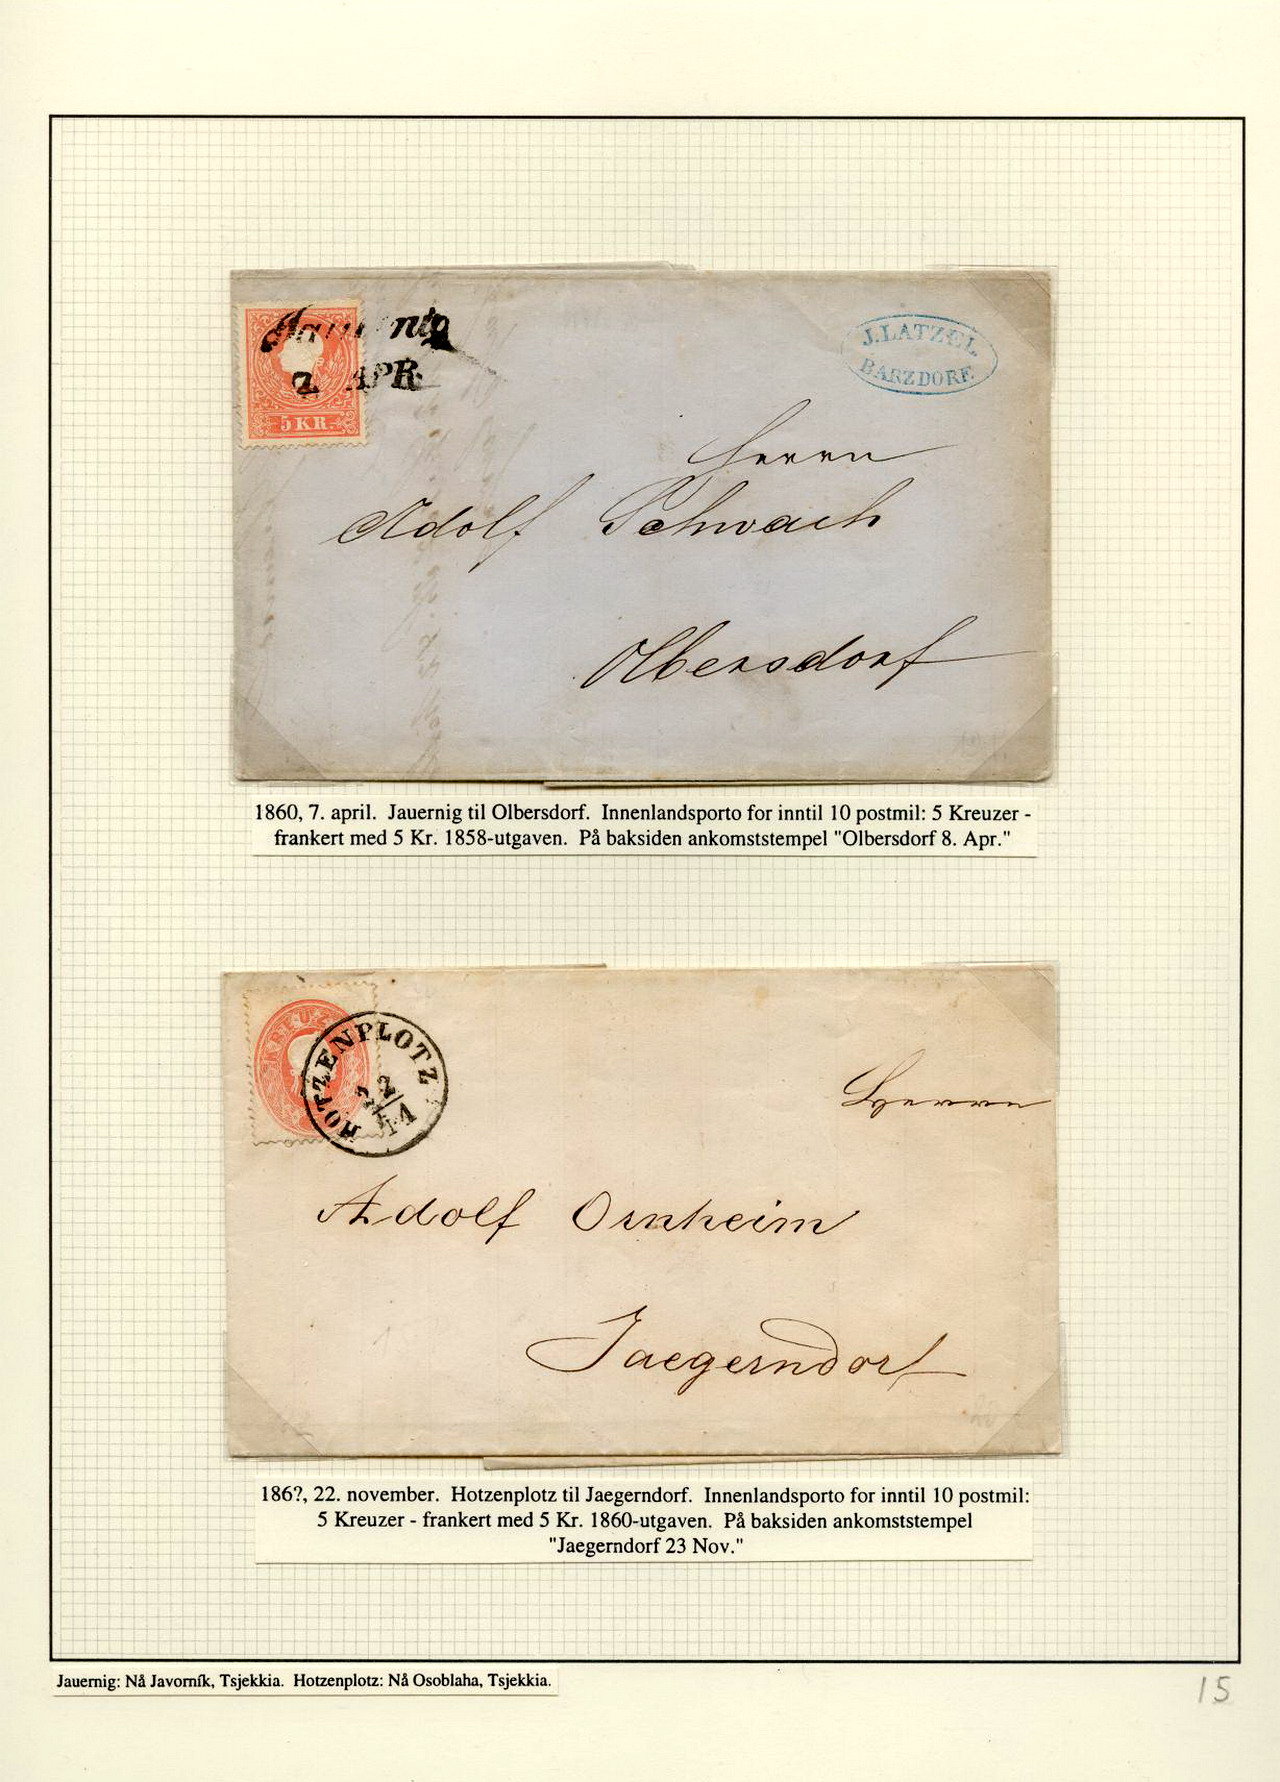 Jauernig
7. APR.
5 KR.
J. LATZEL
BARZDORF
Herrn
Adolf Schwach
Olbersdorf
1860, 7. april. Jauernig til Olbersdorf. Innenlandsporto for inntil 10 postmil: 5 Kreuzer -
frankert med 5 Kr. 1858-utgaven. På baksiden ankomststempel "Olbersdorf 8. Apr."
KREUZ
HOTZENPLOTZ
22/11
Herrn
Adolf Ornheim
Jaegerndorf
186?, 22. november. Hotzenplotz til Jaegerndorf. Innenlandsporto for inntil 10 postmil:
5 Kreuzer - frankert med 5 Kr. 1860-utgaven. På baksiden ankomststempel
"Jaegerndorf 23 Nov."
Jauernig: Nå Javorník, Tsjekkia. Hotzenplotz: Nå Osoblaha, Tsjekkia.
15